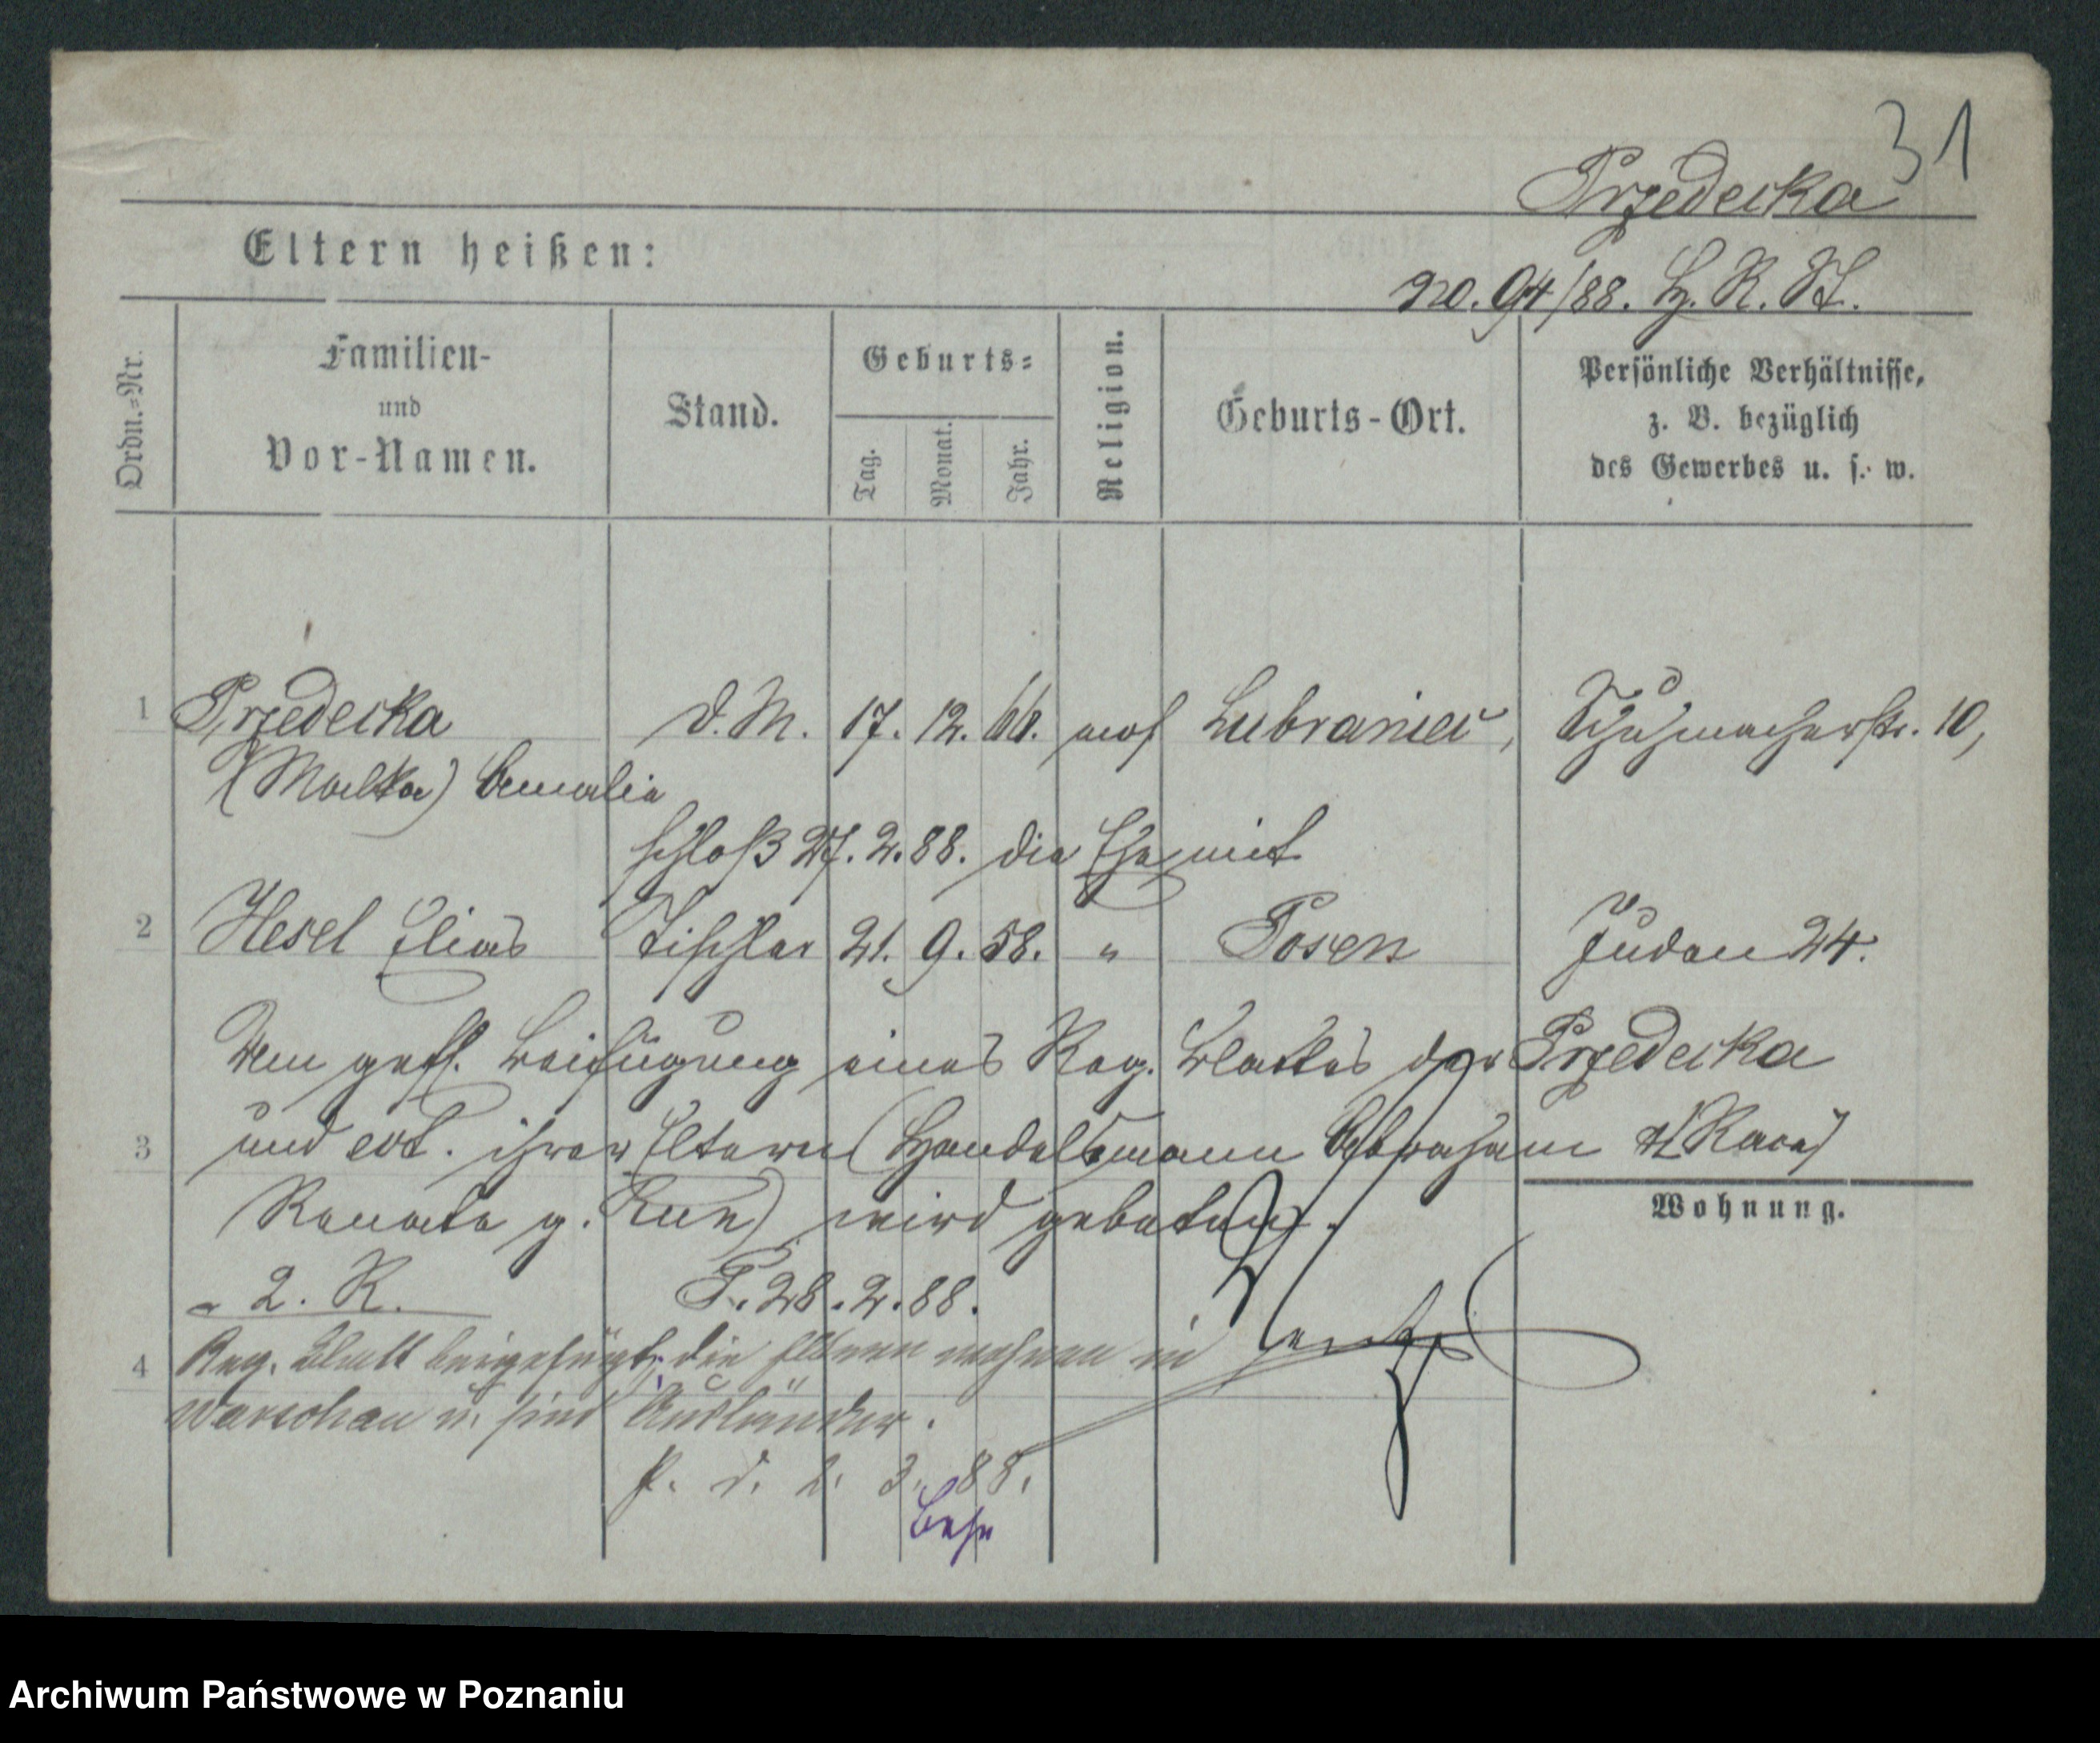 31
Przedecka
Eltern heißen:
No. 94/88. H. R. St.
Ordn.-Nr.
Familien-
und
Vor-Namen.
Stand.
Geburts-
Tag.
Monat.
Jahr.
Religion.
Geburts-Ort.
Persönliche Verhältnisse,
z. B. bezüglich
des Gewerbes u. s. w.
1 Przedecka d. M. 17. 12. 66. mos Lubraniec, Schuhmacherstr. 10,
(Malka) Amalie
schloß 27. 2. 88. die Ehe mit
2 Hesel Elias Tischler 21. 9. 58. " Posen Juden 24.
Um gefl. Beifügung eines Reg. Blattes der Przedecka
3 und evt. ihrer Eltern (Handelsmann Abraham
Renate g.) wird gebeten.
Wohnung.
2. R. P. 28. 2. 88.
4 Reg. Blatt beigefügt, die Eltern wohnen in
Warschau u. sind Ausländer.
P. d. 2. 3. 88.
Archiwum Państwowe w Poznaniu